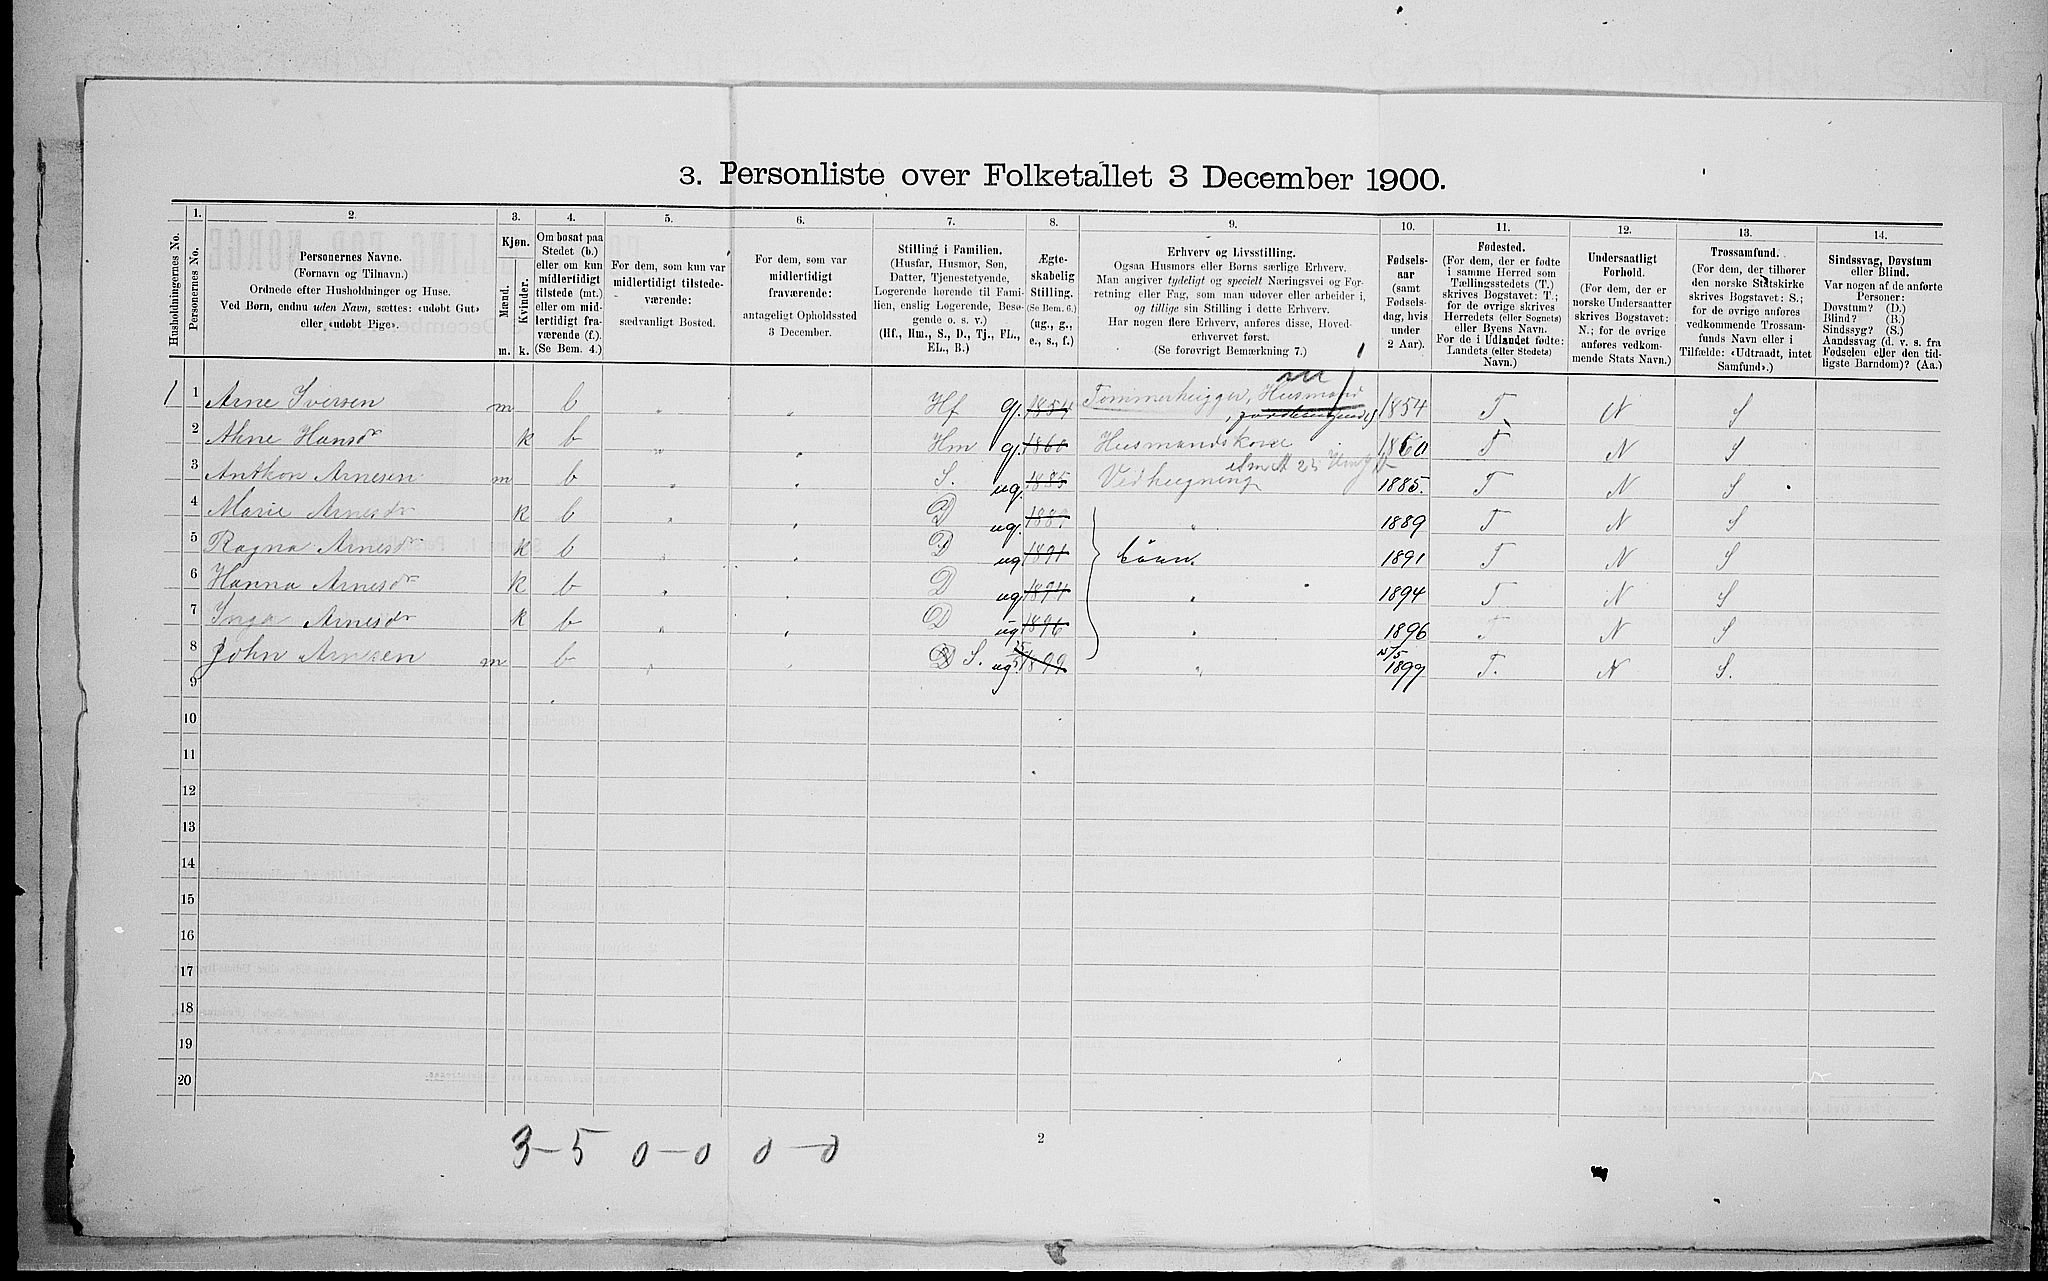 3. Personliste over Folketallet 3 December 1900.
Husholdningernes No.
1.
Personernes No.
2.
Personernes Navne.
(Fornavn og Tilnavn.)
Ordnede efter Husholdninger og Huse.
Ved Børn, endnu uden Navn, sættes: «udøbt Gut»
eller «udøbt Pige».
3.
Kjøn.
Mænd.
Kvinder.
m.
k.
4.
Om bosat paa
Stedet (b.)
eller om kun
midlertidigt
tilstede (mt.)
eller om mid-
lertidigt fra-
værende (f.).
(Se Bem. 4.)
5.
For dem, som kun var
midlertidigt tilstede-
værende:
sædvanligt Bosted.
6.
For dem, som var
midlertidigt
fraværende:
antageligt Opholdssted
3 December.
7.
Stilling i Familien.
(Husfar, Husmor, Søn,
Datter, Tjenestetyende,
Logerende hørende til Fami-
lien, enslig Logerende, Besø-
gende o. s. v.)
(Hf., Hm., S., D., Tj., FL.,
EL., B.)
8.
Ægte-
skabelig
Stilling.
(Se Bem. 6.)
(ug., g.,
e., s., f.)
9.
Erhverv og Livsstilling.
Ogsaa Husmors eller Børns særlige Erhverv.
Man angiver tydeligt og specielt Næringsvei og For-
retning eller Fag, som man udøver eller arbeider i,
og tillige sin Stilling i dette Erhverv.
Har nogen flere Erhverv, anføres disse, Hoved-
erhvervet først.
(Se forøvrigt Bemærkning 7.)
10.
Fødsels-
aar
(samt
Fødsels-
dag, hvis
under
2 Aar).
11.
Fødested.
(For dem, der er fødte
i samme Herred som
Tællingsstedets (T.)
skrives Bogstavet: T.;
for de øvrige skrives
Herredets (eller Sognets)
eller Byens Navn.
For de i Udlandet fødte:
Landets (eller Stedets)
Navn.)
12.
Undersaatligt
Forhold.
(For dem, der er
norske Undersaatter
skrives Bogstavet:
N.; for de øvrige
anføres vedkom-
mende Stats Navn.)
13.
Trossamfund.
(For dem, der tilhører
den norske Statskirke
skrives Bogstavet: S.;
for de øvrige anføres
vedkommende Trossam-
funds Navn eller i
Tilfælde: «Udtraadt, intet
Samfund».)
14.
Sindssvag, Døvstum
eller Blind.
Var nogen af de anførte
Personer:
Døvstum? (D.)
Blind? (B.)
Sindssyg? (S.)
Aandssvag (d. v. s. fra
Fødselen eller den tid-
ligste Barndom)? (Aa.)
1 1 Arne Iversen m b " " Hf gj. 1854 Tømmerhugger, Husmand 1854 T N S
2 Ahne Hansdr k b " " Hm gj. 1860 Husmandskone 1860 T N S
3 Anthon Arnesen m b " " S. ug. 1885 Vedhugning 1885. T N S
4 Marie Arnesdr k b " " D ug. 1889 " 1889 T N S
5 Ragna Arnesdr k b " " D ug 1891 børn. 1891 T N S
6 Hanna Arnesdr k b " " D ug. 1894 " 1894 T N S
7 Inga Arnesdr k b " " D ug. 1896 " 1896 T N S
8 John Arnesen m b " " D S. ug. 15/5 1899 " 15/5 1899 T. N S.
9
10
11
12
13
14
15
16
17
18
19
20
3-5 0-0 0-0
2